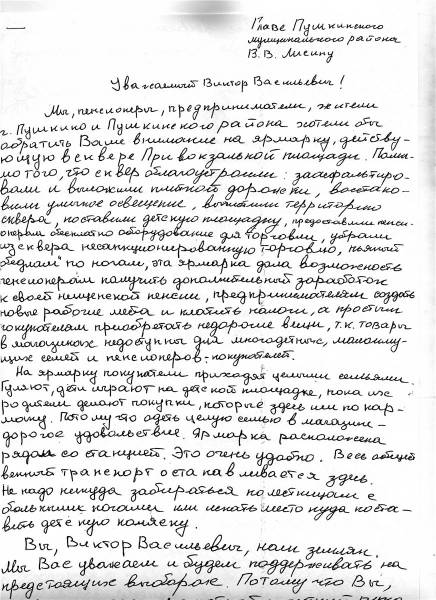 Главе Пушкинского
муниципального района
В.В. Лисину
Уважаемый Виктор Васильевич!
Мы, пенсионеры, предприниматели, жители
г. Пушкино и Пушкинского района хотели бы
обратить Ваше внимание на ярмарку, действу-
ющую в сквере Привокзальной площади. Поми-
мо того, что сквер благоустроили: заасфальтиро-
вали и выложили плиткой дорожки, восстано-
вили уличное освещение, вычистили территорию
сквера, поставили детскую площадку, предоставили пенси-
онерам бесплатно оборудование для торговли, убрали
из сквера несанкционированную торговлю, пьяный
бедлам по ночам, эта ярмарка дала возможность
пенсионерам получить дополнительный заработок
к своей нищенской пенсии, предпринимателям создать
новые рабочие места и платить налоги, а простым
покупателям приобретать недорогие вещи, т.к. товары
в магазинах недоступны для многодетных, малоиму-
щих семей и пенсионеров-покупателей.
На ярмарку покупатели приходят целыми семьями.
Гуляют, дети играют на детской площадке, пока их
родители делают покупки, которые здесь им по кар-
ману. Потому что одеть целую семью в магазине -
дорогое удовольствие. Ярмарка расположена
рядом со станцией. Это очень удобно. Весь общест
венный транспорт останавливается здесь.
Не надо никуда забираться по лестницам с
большими ногами или искать место куда поста-
вить детскую коляску.
Вы, Виктор Васильевич, наш земляк.
Мы Вас уважаем и будем поддерживать на
предстоящих выборах. Потому что Вы,